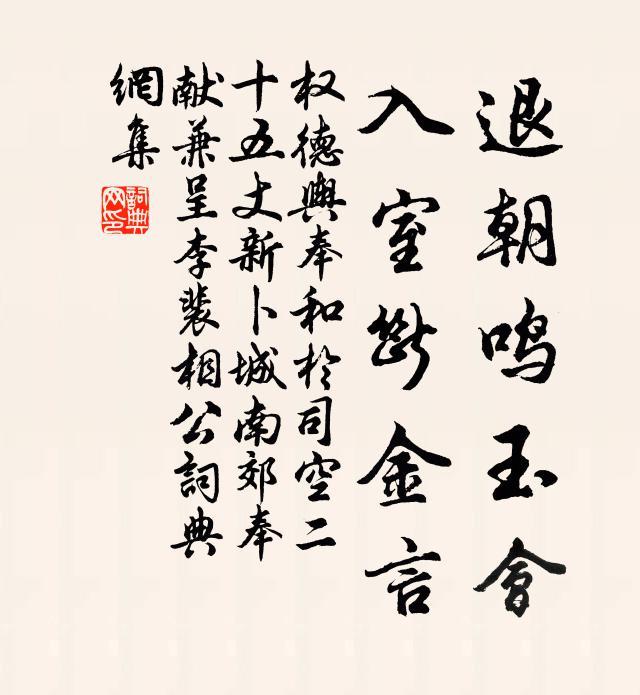 退朝鸣玉會
入室斷金言
权德輿奉和於司空二
十五丈新卜城南郊奉
献兼呈李裴相公詞典
網集
詞典網印